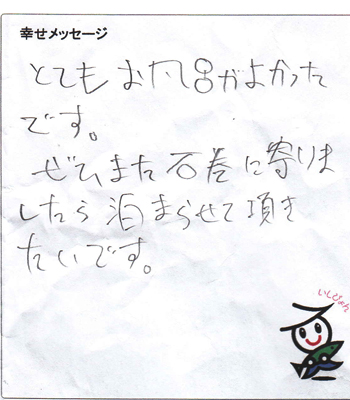 幸せメッセージ
とてもお风呂がよかった
です。
ぜひまた石巻に寄りま
したら泊まらせて頂き
たいです。
いしぴょん